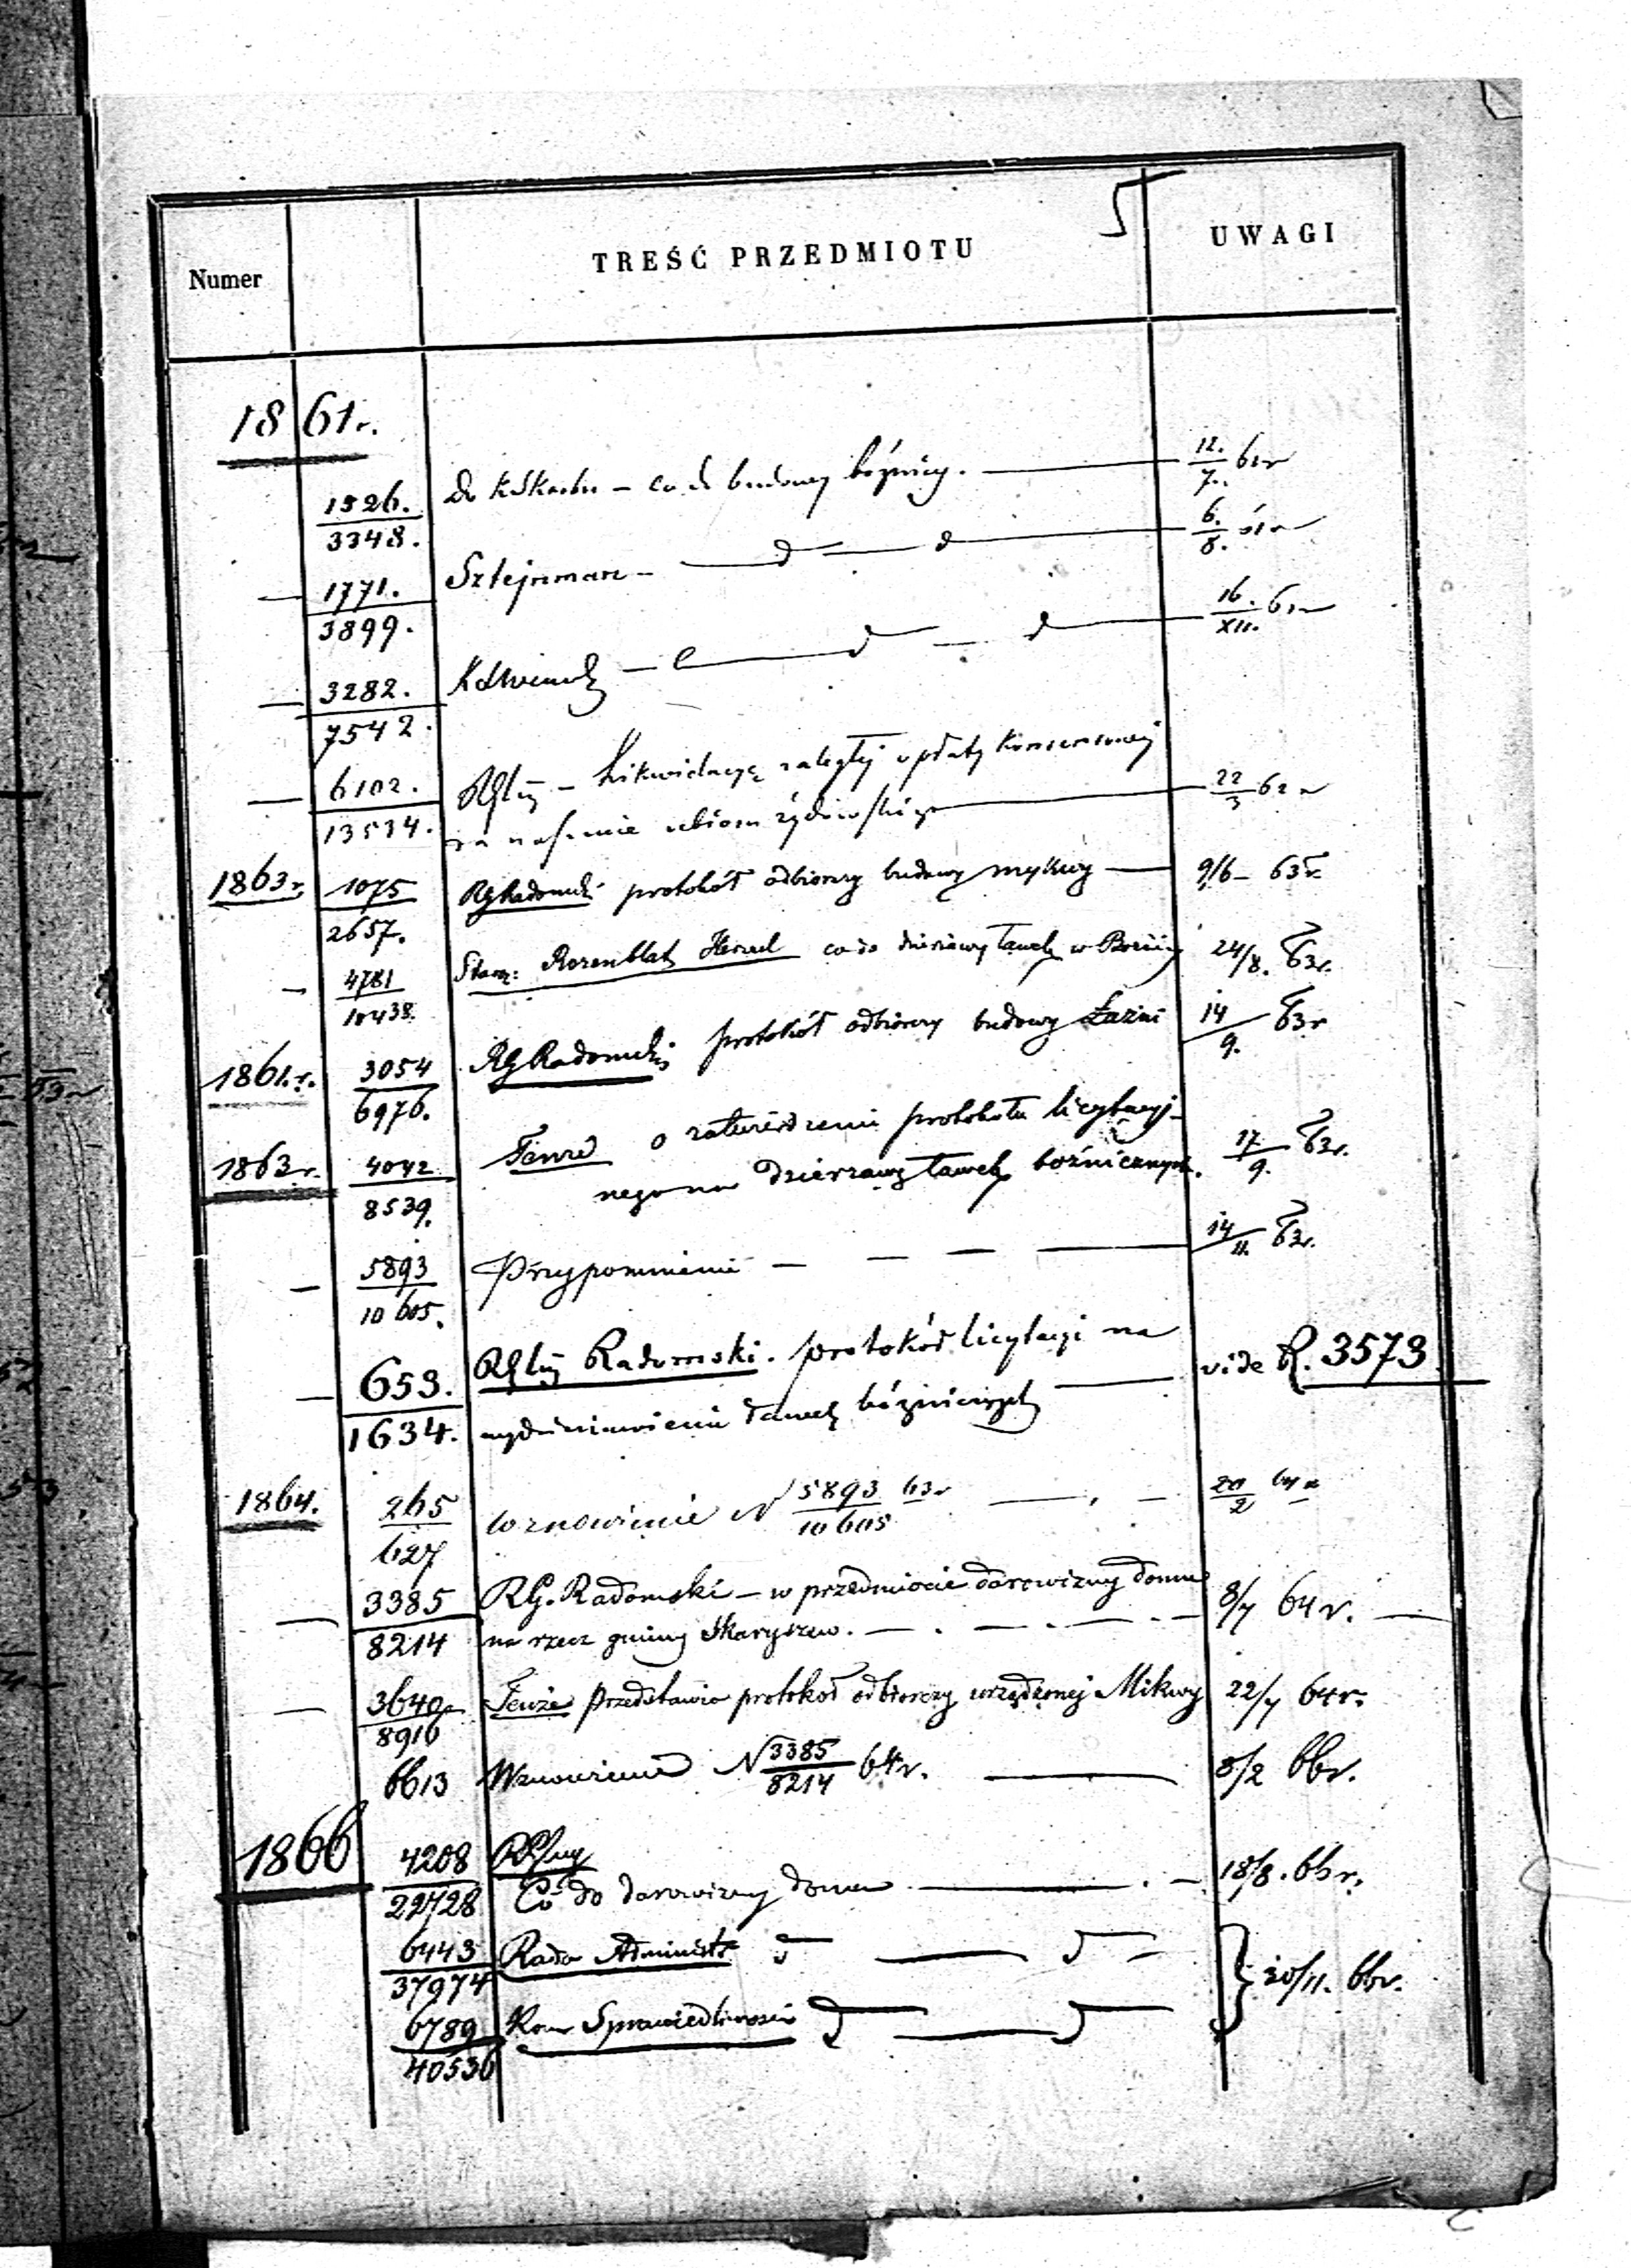 5
Numer TREŚĆ PRZEDMIOTU UWAGI
1861r.
1526./3348. Do KSkarbu – co do budowy bóżnicy. — 12./7. 61r
— 1771./3899. Sztejnman – — d — d — 6./8. 61r
— 3282./7542. — d — d — 16./XII. 61r
— 6102./13534. – Likwidacyę zaległej opłaty konsensowej
za noszenie ubioru żydowskiego — 22/3 62r
1863r. 1075/2657. RGRadomski protokół odbiorczy budowy mykwy — 9/6 – 63r.
— 4781/10438. Rozenblat Herszel co do dzierżawy ławek w Bożnicy 24/8. 63r.
1861.r. 3054/6976. RGRadomski protokół odbiorczy budowy Łaźni 14/9. 63r
1863r. 4042/8539. Tenże o zatwierdzenie protokołu licytacyj-
nego na dzierżawę ławek bożnicznych. 17/9. 63r.
— 5893/10605. Przypomnienie — — — — 14/11. 63r.
— 653./1634. Radomski. protokół licytacyi na
wydzierżawienie ławek bóżnicznych — vide R. 3573
1864. 265/627 Wznowienie N 5893/10605 63r — — 20/2 64r
— 3385/8214 RG. Radomski – w przedmiocie darowizny domu
na rzecz gminy Skaryszew. — . — . — . — 8/7 64r. —
— 3640/8916 Tenże przedstawia protokoł odbiorczy urządzonej Mikwy 22/7 64r.
6613 Wznowienie N 3385/8214 64r. — 8/2 66r.
1866 4208/22728
Co do darowizny domu — . — 18/8. 66r.
6443/37974 Rada Administr d — d –
6789/40536 Kom Sprawiedliwości d — d — } 30/11. 66r.